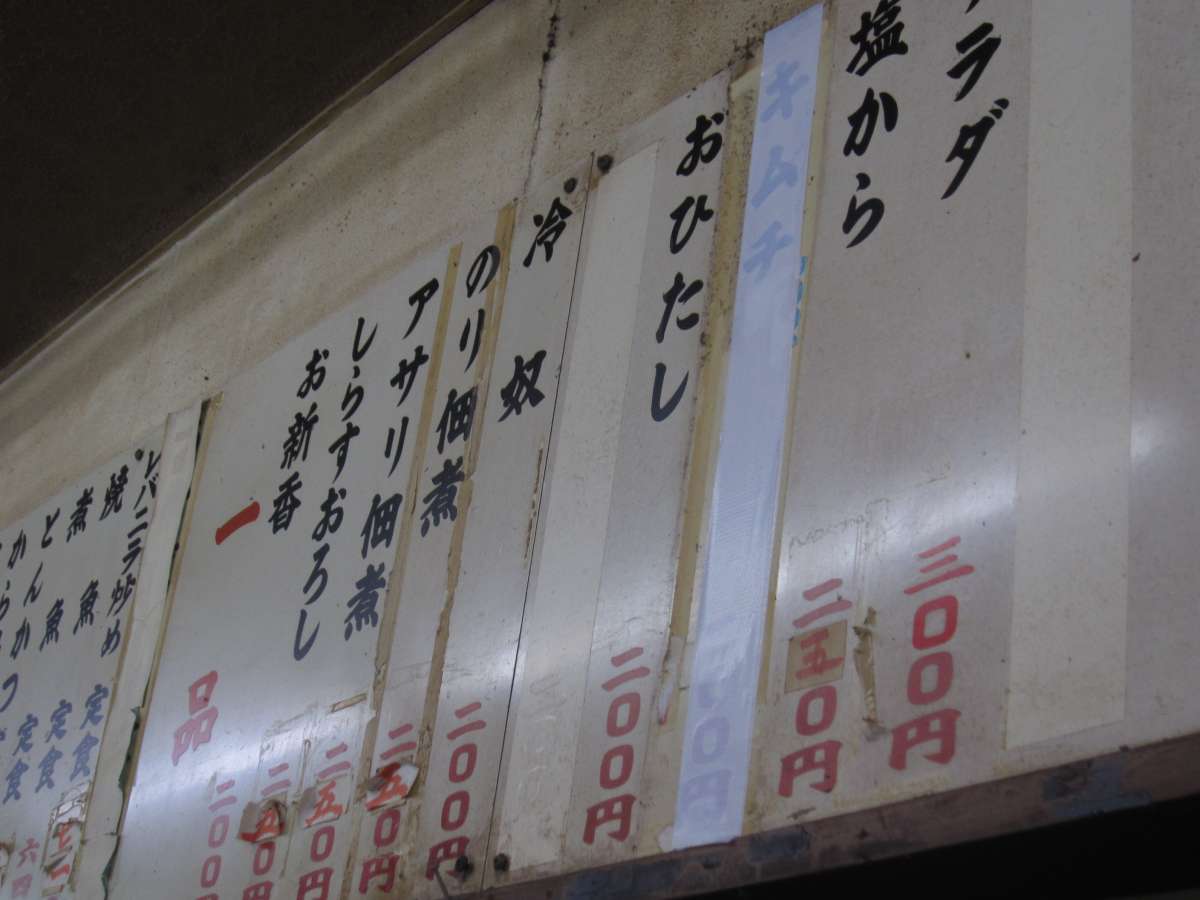 ラダ 三〇〇円
塩から 二五〇円
キムチ
おひたし 二〇〇円
冷奴 二〇〇円
のり佃煮 二五〇円
アサリ佃煮 二五〇円
しらすおろし 二五〇
お新香 二〇〇
一品
レバニラ炒め
焼魚定食
煮魚定食
とんかつ定食